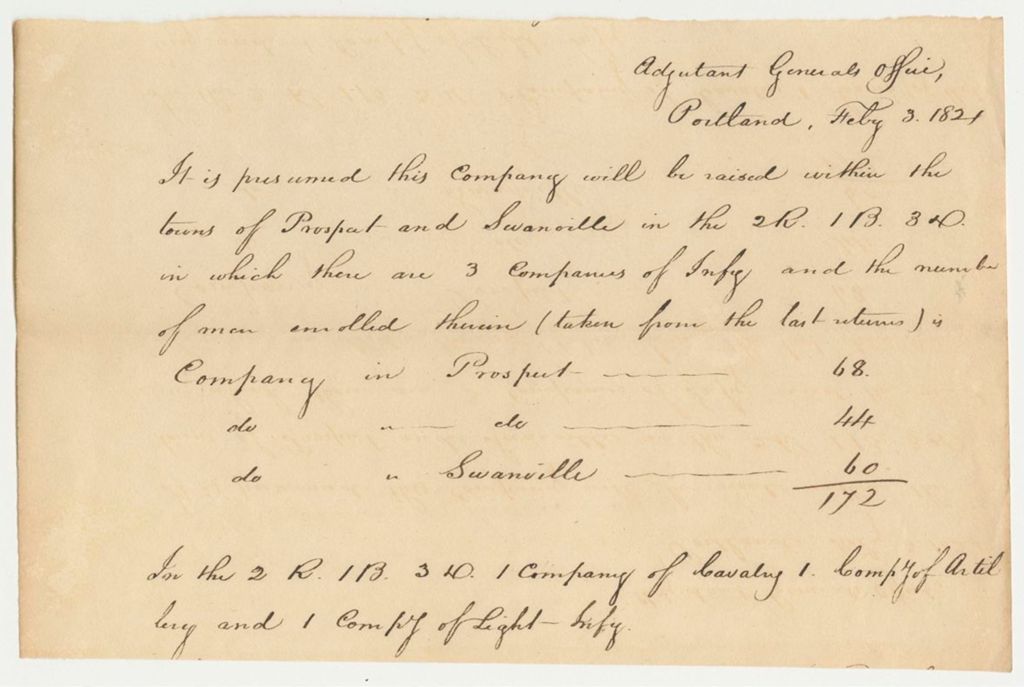 Adjutant Generals Office,
Portland, Feby 3. 1821
It is presumed this Company will be raised within the
towns of Prospect and Swanville in the 2 R. 1 B. 3 D.
in which there are 3 Companies of Infy and the number
of men enrolled therein (taken from the last returns) is
Company in Prospect 68.
do " do 44
do " Swanville 60
172
In the 2 R. 1 B. 3 D. 1 Company of Cavalry 1. Compy of Artil
lery and 1 Compy of Light Infy.